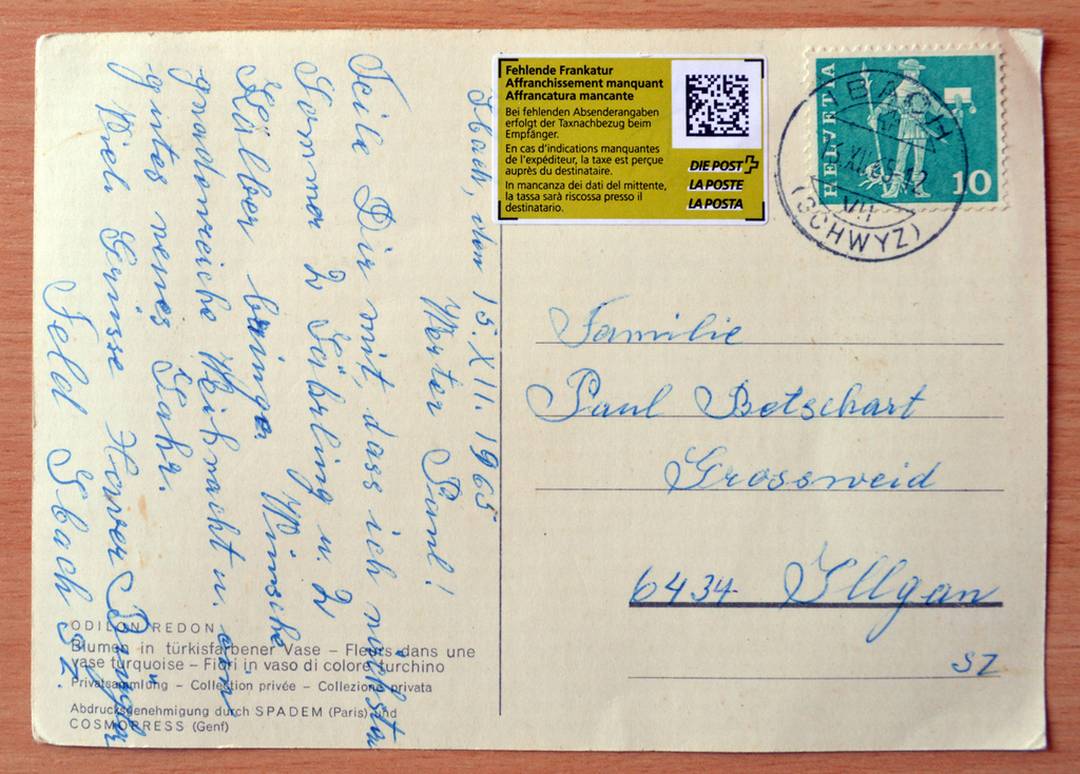 Ibach, den 15. XII. 1965
Werter Paul!
Teile Dir mit, dass ich nächsten
Sommer 2 Jährling u. 2
Kälber bringe. Wünsche
gnadenreiche Weihnacht u. ein
gutes neues Jahr.
Viele Grüsse
Feld Ibach Sz.
Fehlende Frankatur
Affranchissement manquant
Affrancatura mancante
Bei fehlenden Absenderangaben
erfolgt der Taxnachbezug beim
Empfänger.
En cas d'indications manquantes
de l'expéditeur, la taxe est perçue
auprès du destinataire.
In mancanza dei dati del mittente,
la tassa sarà riscossa presso il
destinatario.
DIE POST
LA POSTE
LA POSTA
HELVETIA
10
IBACH
XII.65-12
VII
(SCHWYZ)
Familie
Paul Betschart
Grossweid
6434 Illgau
SZ
ODILON REDON
Blumen in türkisfarbener Vase – Fleurs dans une
vase turquoise – Fiori in vaso di colore turchino
Privatsammlung – Collection privée – Collezione privata
Abdrucksgenehmigung durch SPADEM (Paris) und
COSMOPRESS (Genf)